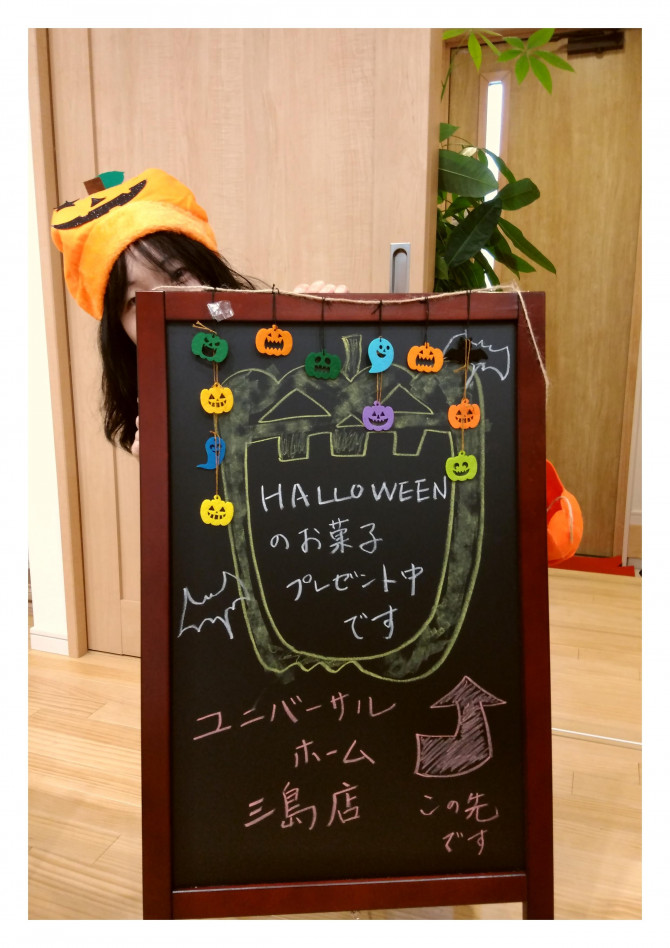 HALLOWEEN
のお菓子
プレゼント中
です
ユニバーサル
ホーム
三島店
この先
です